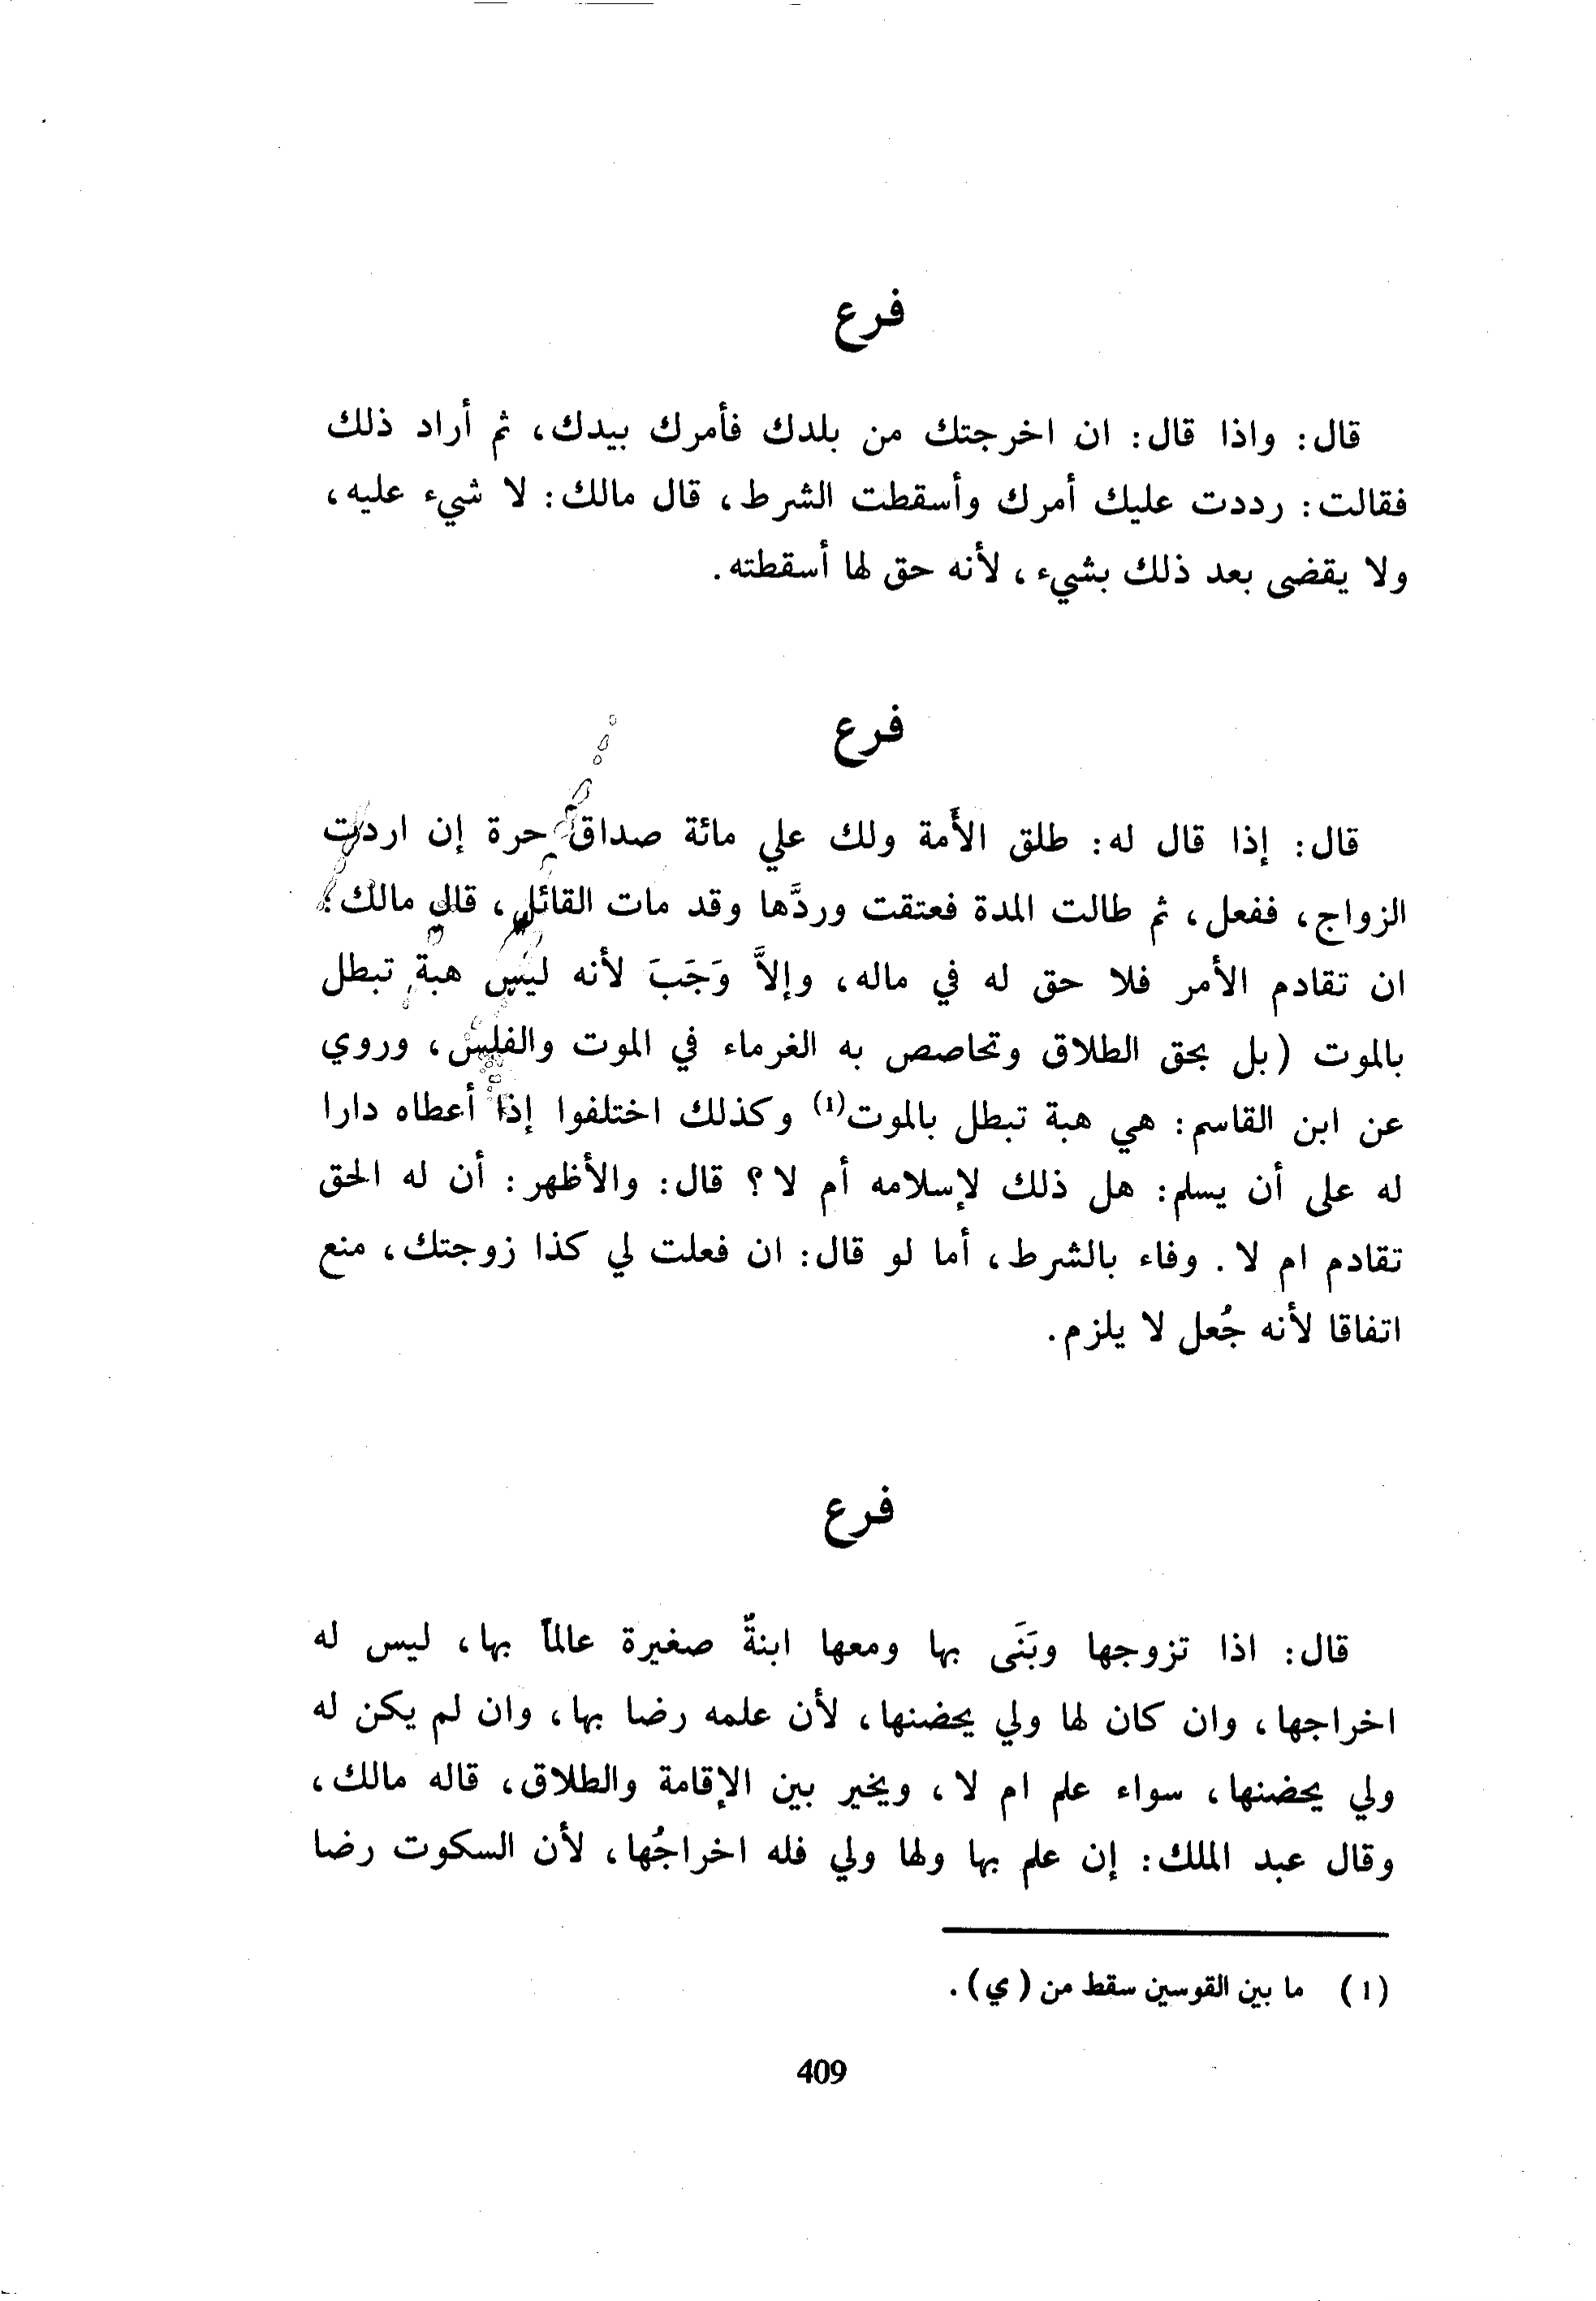 فرع
قال: واذا قال: ان اخرجتك من بلدك فأمرك بيدك، ثم أراد ذلك
فقالت: رددت عليك أمرك وأسقطت الشرط، قال مالك: لا شيء عليه،
ولا يقضى بعد ذلك بشيء، لأنه حق لها أسقطته.
فرع
قال: إذا قال له: طلق الأَمة ولك علي مائة صداق حرة إن اردت
الزواج، ففعل، ثم طالت المدة فعتقت وردَّها وقد مات القائل، قال مالك:
ان تقادم الأمر فلا حق له في ماله، وإلاَّ وَجَبَ لأنه ليس هبة تبطل
بالموت (بل بحق الطلاق وتحاصص به الغرماء في الموت والفلس، وروي
عن ابن القاسم: هي هبة تبطل بالموت(1) وكذلك اختلفوا إذا أعطاه دارا
له على أن يسلم: هل ذلك لإسلامه أم لا؟ قال: والأظهر: أن له الحق
تقادم ام لا. وفاء بالشرط، أما لو قال: ان فعلت لي كذا زوجتك، منع
اتفاقا لأنه جُعل لا يلزم.
فرع
قال: اذا تزوجها وبَنَى بها ومعها ابنةٌ صغيرة عالماً بها، ليس له
اخراجها، وان كان لها ولي يحضنها، لأن علمه رضا بها، وان لم يكن له
ولي يحضنها، سواء علم ام لا، ويخير بين الإقامة والطلاق، قاله مالك،
وقال عبد الملك: إن علم بها ولها ولي فله اخراجُها، لأن السكوت رضا
(1) ما بين القوسين سقط من (ي).
409